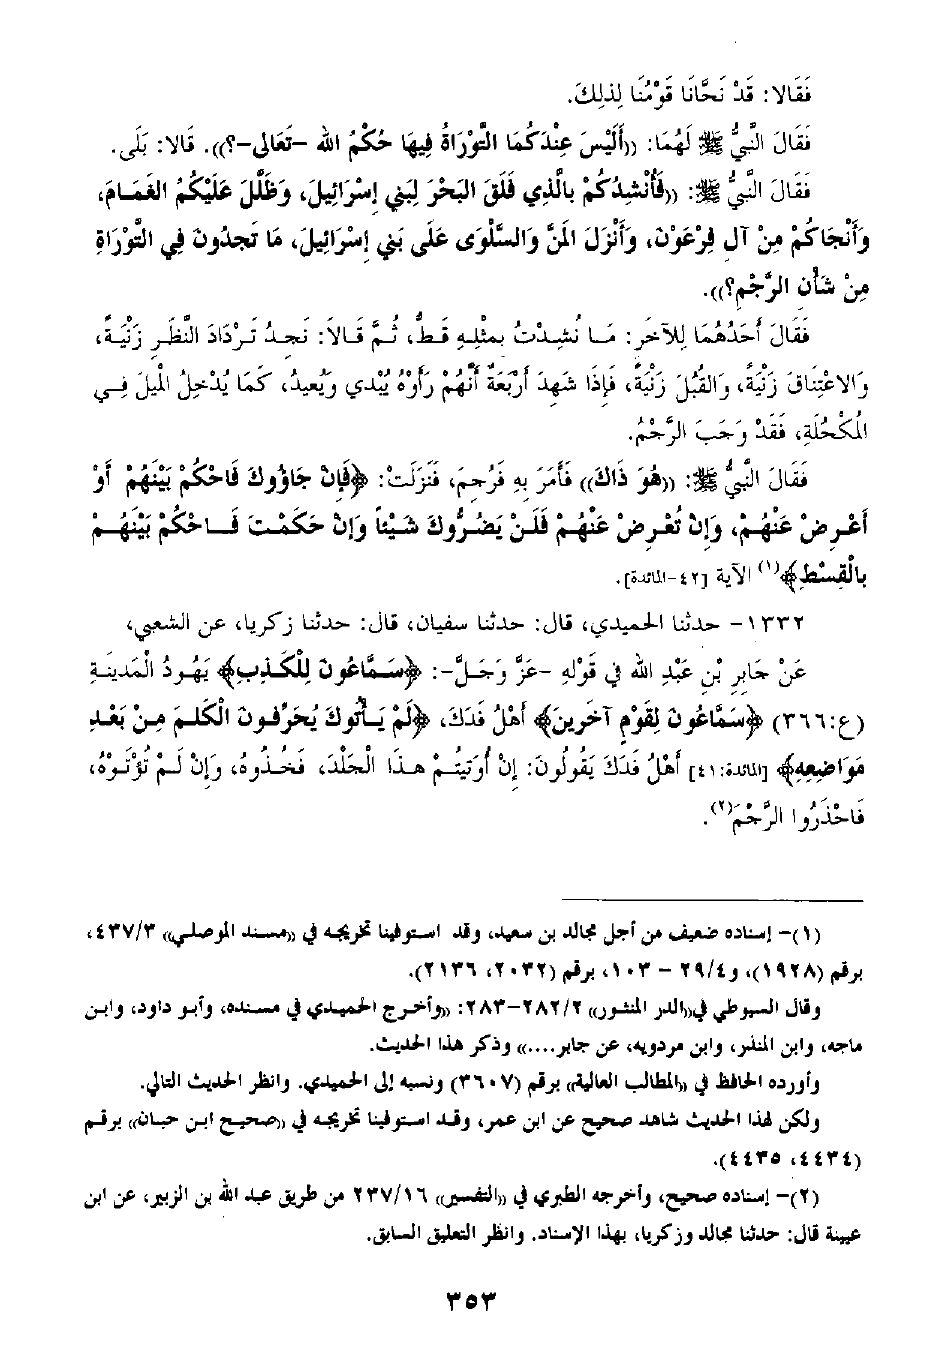 فَقَالا: قَدْ نَحَّانَا قَوْمُنَا لِذلِكَ.
فَقَالَ النَّبِيُّ ﷺ لَهُمَا: ((أَلَيْسَ عِنْدَكُمَا التَّوْرَاةُ فِيهَا حُكْمُ الله -تَعَالى-؟)). قَالا: بَلَى.
فَقَالَ النَّبِيُّ ﷺ: ((فَأُنْشِدُكُمْ بالَّذِي فَلَقَ البَحْرَ لِبَنِي إسْرَائِيلَ، وَظَلَّلَ عَلَيْكُمُ الغَمَامَ،
وَأَنْجَاكُمْ مِنْ آلِ فِرْعَوْنَ، وَأَنْزَلَ المَنَّ وَالسَّلْوَى عَلَى بَنِي إسْرَائِيلَ، مَا تَجدُونَ فِي التَّوْرَاةِ
مِنْ شَأْنِ الرَّجْمِ؟)).
فَقَالَ أَحَدُهُمَا لِلآخَرِ: مَا نُشِدْتُ بمِثْلِهِ قَطُّ، ثُمَّ قَالاَ: نَجدُ تَرْدَادَ النَّظَرِ زَنْيَةً،
وَالاعْتِنَاقَ زَنْيَةً، وَالقُبَلَ زَنْيَةً، فَإذَا شَهِدَ أَرْبَعَةٌ أَنَّهُمْ رَأَوْهُ يُبْدِي وَيُعِيدُ، كَمَا يُدْخِلُ المَيلَ فِي
المُكْحُلَةِ، فَقَدْ وَجَبَ الرَّجْمُ.
فَقَالَ النَّبِيُّ ﷺ: ((هُوَ ذَاكَ)) فَأَمَرَ بهِ فَرُجِمَ، فَنَزَلَتْ: ﴿فَإِنْ جَاؤُوكَ فَاحْكُمْ بَيْنَهُمْ أَوْ
أَعْرِضْ عَنْهُمْ، وَإنْ تُعْرِضْ عَنْهُمْ فَلَنْ يَضُرُّوكَ شَيْئاً وَإنْ حَكَمْتَ فَاحْكُمْ بَيْنَهُمْ
بالْقِسْطِ﴾(١) الآية [٤٢-المائدة].
١٣٣٢- حدثنا الحميدي، قال: حدثنا سفيان، قال: حدثنا زكريا، عن الشعبي،
عَنْ جَابِرِ بْنِ عَبْدِ الله فِي قَوْلِهِ -عَزَّ وَجَلَّ-: ﴿سَمَّاعُونَ لِلْكَذِبِ﴾ يَهُودُ الْمَدِينَةِ
(ع:٣٦٦) ﴿سَمَّاعُونَ لِقَوْمٍ آخَرِينَ﴾ أَهْلُ فَدَكَ، ﴿لَمْ يَأْتُوكَ يُحَرِّفُونَ الْكَلِمَ مِنْ بَعْدِ
مَوَاضِعِهِ﴾ [المائدة:٤١] أَهْلُ فَدَكَ يَقُولُونَ: إنْ أُوتِيتُمْ هَذَا الْجَلْدَ، فَخُذُوهُ، وَإنْ لَمْ تُؤْتَوْهُ،
فَاحْذَرُوا الرَّجْمَ(٢).
(١)- إسناده ضعيف من أجل مجالد بن سعيد، وقد استوفينا تخريجه في ((مسند الموصلي)) ٤٣٧/٣،
برقم (١٩٢٨)، و٢٩/٤ - ١٠٣، برقم (٢٠٣٢، ٢١٣٦).
وقال السيوطي في((الدر المنثور)) ٢٨٢/٢-٢٨٣: ((وأخرج الحميدي في مسنده، وأبو داود، وابن
ماجه، وابن المنذر، وابن مردويه، عن جابر....)) وذكر هذا الحديث.
وأورده الحافظ في ((المطالب العالية)) برقم (٣٦٠٧) ونسبه إلى الحميدي. وانظر الحديث التالي.
ولكن لهذا الحديث شاهد صحيح عن ابن عمر، وقد استوفينا تخريجه في ((صحيح ابن حبان)) برقم
(٤٤٣٤، ٤٤٣٥).
(٢)- إسناده صحيح، وأخرجه الطبري في ((التفسير)) ٢٣٧/١٦ من طريق عبد الله بن الزبير، عن ابن
عيينة قال: حدثنا مجالد وزكريا، بهذا الإسناد. وانظر التعليق السابق.
٣٥٣